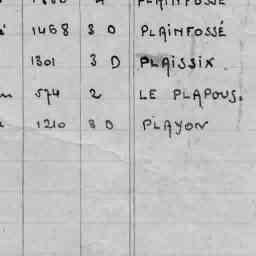 PLAINFOSSÉ
1468 3 D PLAINFOSSÉ
1301 3 D PLAISSIX.
574 2 LE PLAPOUS.
1210 3 D PLAYON